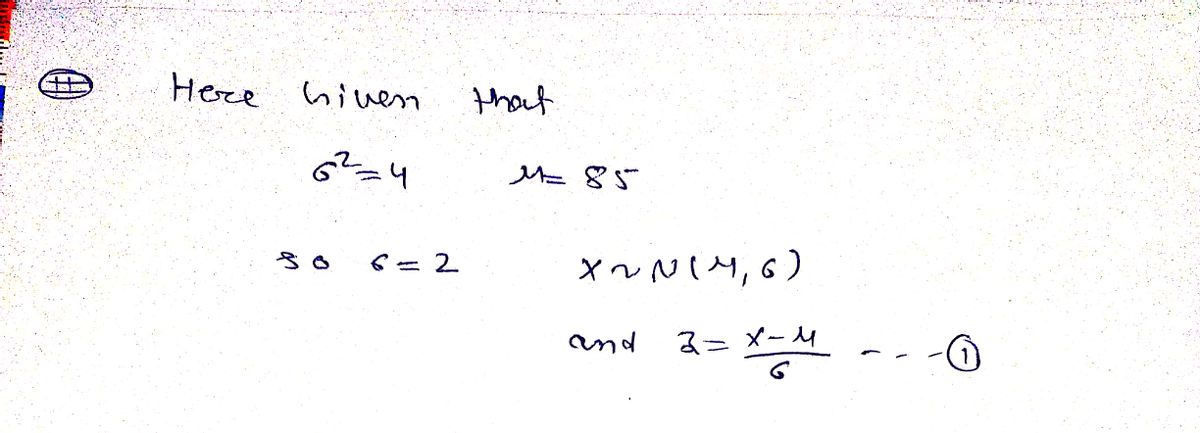 # Here Given that
σ²=4 μ= 85
so σ=2 X~N(μ,σ)
and Z= X-μ/σ - - -①